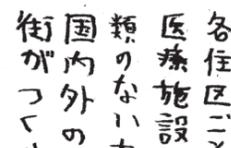 各住区ご
医療施設
類のない
国内外の
街がつく